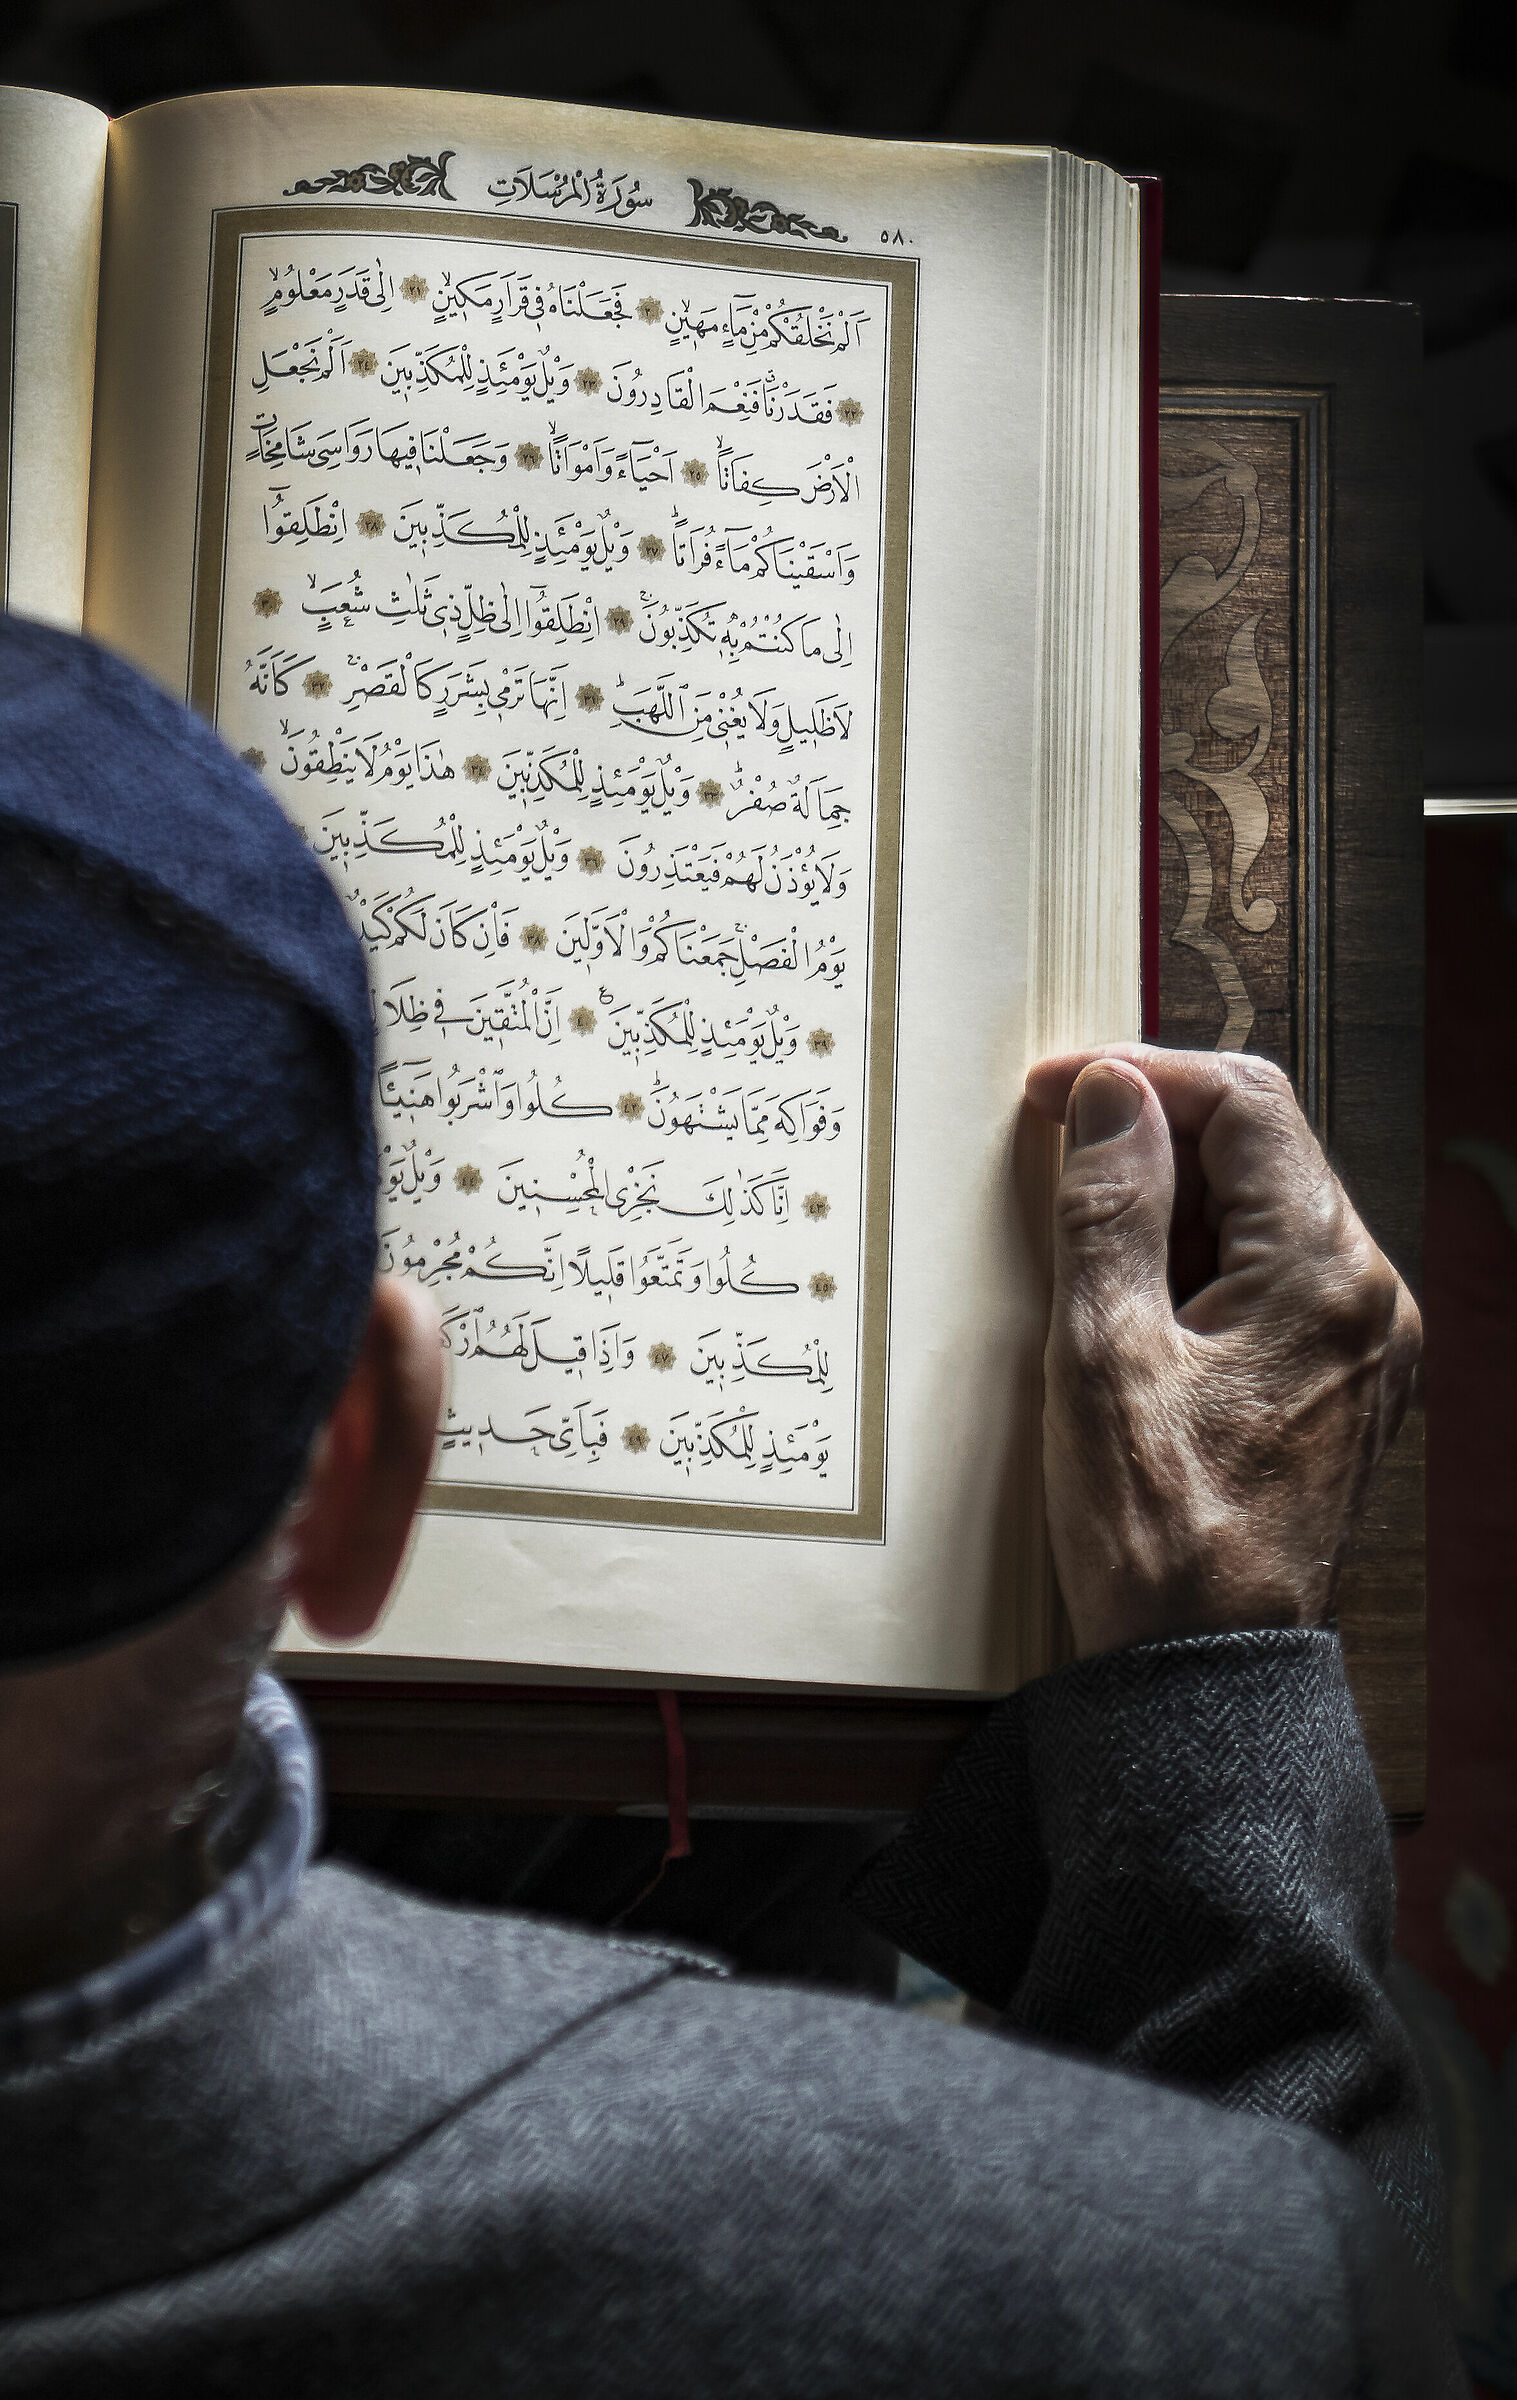 سُورَةُ الْمُرْسَلَاتِ ٥٨٠
اَلَمْ نَخْلُقْكُمْ مِنْ مَٓاءٍ مَه۪ينٍۙ ٢٠ فَجَعَلْنَاهُ ف۪ي قَرَارٍ مَك۪ينٍۙ ٢١ اِلٰى قَدَرٍ مَعْلُومٍۙ
٢٢ فَقَدَرْنَاۗ فَنِعْمَ الْقَادِرُونَ ٢٣ وَيْلٌ يَوْمَئِذٍ لِلْمُكَذِّب۪ينَ ٢٤ اَلَمْ نَجْعَلِ
الْاَرْضَ كِفَاتاًۙ ٢٥ اَحْيَٓاءً وَاَمْوَاتاًۙ ٢٦ وَجَعَلْنَا ف۪يهَا رَوَاسِيَ شَامِخَاتٍ
وَاَسْقَيْنَاكُمْ مَٓاءً فُرَاتاًۜ ٢٧ وَيْلٌ يَوْمَئِذٍ لِلْمُكَذِّب۪ينَ ٢٨ اِنْطَلِقُٓوا
اِلٰى مَا كُنْتُمْ بِه۪ تُكَذِّبُونَۚ ٢٩ اِنْطَلِقُٓوا اِلٰى ظِلٍّ ذ۪ي ثَلٰثِ شُعَبٍۙ ٣٠
لَا ظَل۪يلٍ وَلَا يُغْن۪ي مِنَ اللَّهَبِۜ ٣١ اِنَّهَا تَرْم۪ي بِشَرَرٍ كَالْقَصْرِۚ ٣٢ كَاَنَّهُ
جِمَالَةٌ صُفْرٌۜ ٣٣ وَيْلٌ يَوْمَئِذٍ لِلْمُكَذِّب۪ينَ ٣٤ هٰذَا يَوْمُ لَا يَنْطِقُونَۙ
وَلَا يُؤْذَنُ لَهُمْ فَيَعْتَذِرُونَ ٣٦ وَيْلٌ يَوْمَئِذٍ لِلْمُكَذِّب۪ينَ
يَوْمُ الْفَصْلِۚ جَمَعْنَاكُمْ وَالْاَوَّل۪ينَ ٣٨ فَاِنْ كَانَ لَكُمْ كَيْدٌ
٣٩ وَيْلٌ يَوْمَئِذٍ لِلْمُكَذِّب۪ينَ۟ ٤٠ اِنَّ الْمُتَّق۪ينَ ف۪ي ظِلَالٍ
وَفَوَاكِهَ مِمَّا يَشْتَهُونَۜ ٤٢ كُلُوا وَاشْرَبُوا هَن۪ٓيـٔاً
٤٣ اِنَّا كَذٰلِكَ نَجْزِي الْمُحْسِن۪ينَ ٤٤ وَيْلٌ
٤٥ كُلُوا وَتَمَتَّعُوا قَل۪يلاً اِنَّكُمْ مُجْرِمُونَ
لِلْمُكَذِّب۪ينَ ٤٧ وَاِذَا ق۪يلَ لَهُمُ
يَوْمَئِذٍ لِلْمُكَذِّب۪ينَ ٤٩ فَبِاَيِّ حَد۪يثٍ